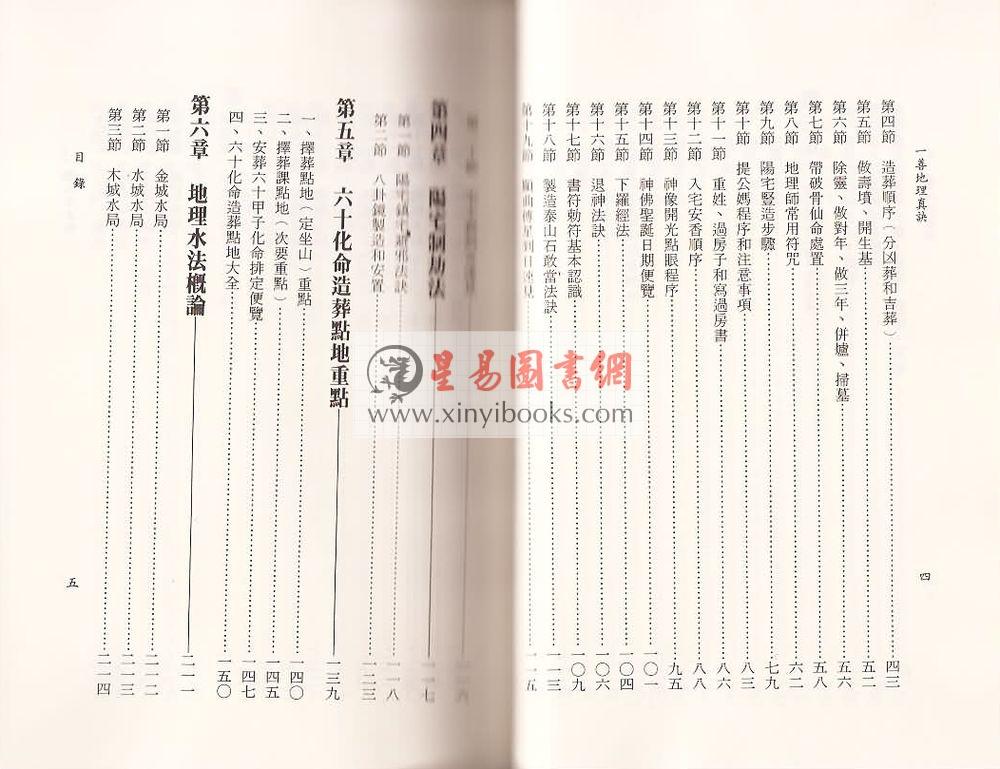 一善地理真訣
四
第四節　造葬順序（分凶葬和吉葬）……四三
第五節　做壽墳、開生基……五二
第六節　除靈、做對年、做三年、併爐、掃墓……五六
第七節　帶破骨仙命處置……五八
第八節　地理師常用符咒……六二
第九節　陽宅豎造步驟……七九
第十節　提公媽程序和注意事項……八三
第十一節　重姓、過房子和寫過房書……八六
第十二節　入宅安香順序……八八
第十三節　神像開光點眼程序……九五
第十四節　神佛聖誕日期便覽……一〇一
第十五節　下羅經法……一〇四
第十六節　退神法訣……一〇六
第十七節　書符勅符基本認識……一〇九
第十八節　製造泰山石敢當法訣……一一三
第十九節　顛曲傅星到日速見……一一五
第四章　陽宅制劫法……一一七
第一節　陽宅鎮宅避邪法訣……一一八
第二節　八卦鏡製造和安置……一二三
第五章　六十化命造葬點地重點……一三九
一、擇葬點地（定坐山）重點……一四〇
二、擇葬課點地（次要重點）……一四五
三、安葬六十甲子化命排定便覽……一四七
四、六十化命造葬點地大全……一五〇
第六章　地理水法概論……二一一
第一節　金城水局……二一二
第二節　水城水局……二一三
第三節　木城水局……二一四
目錄
五
星易圖書網
www.xinyibooks.com